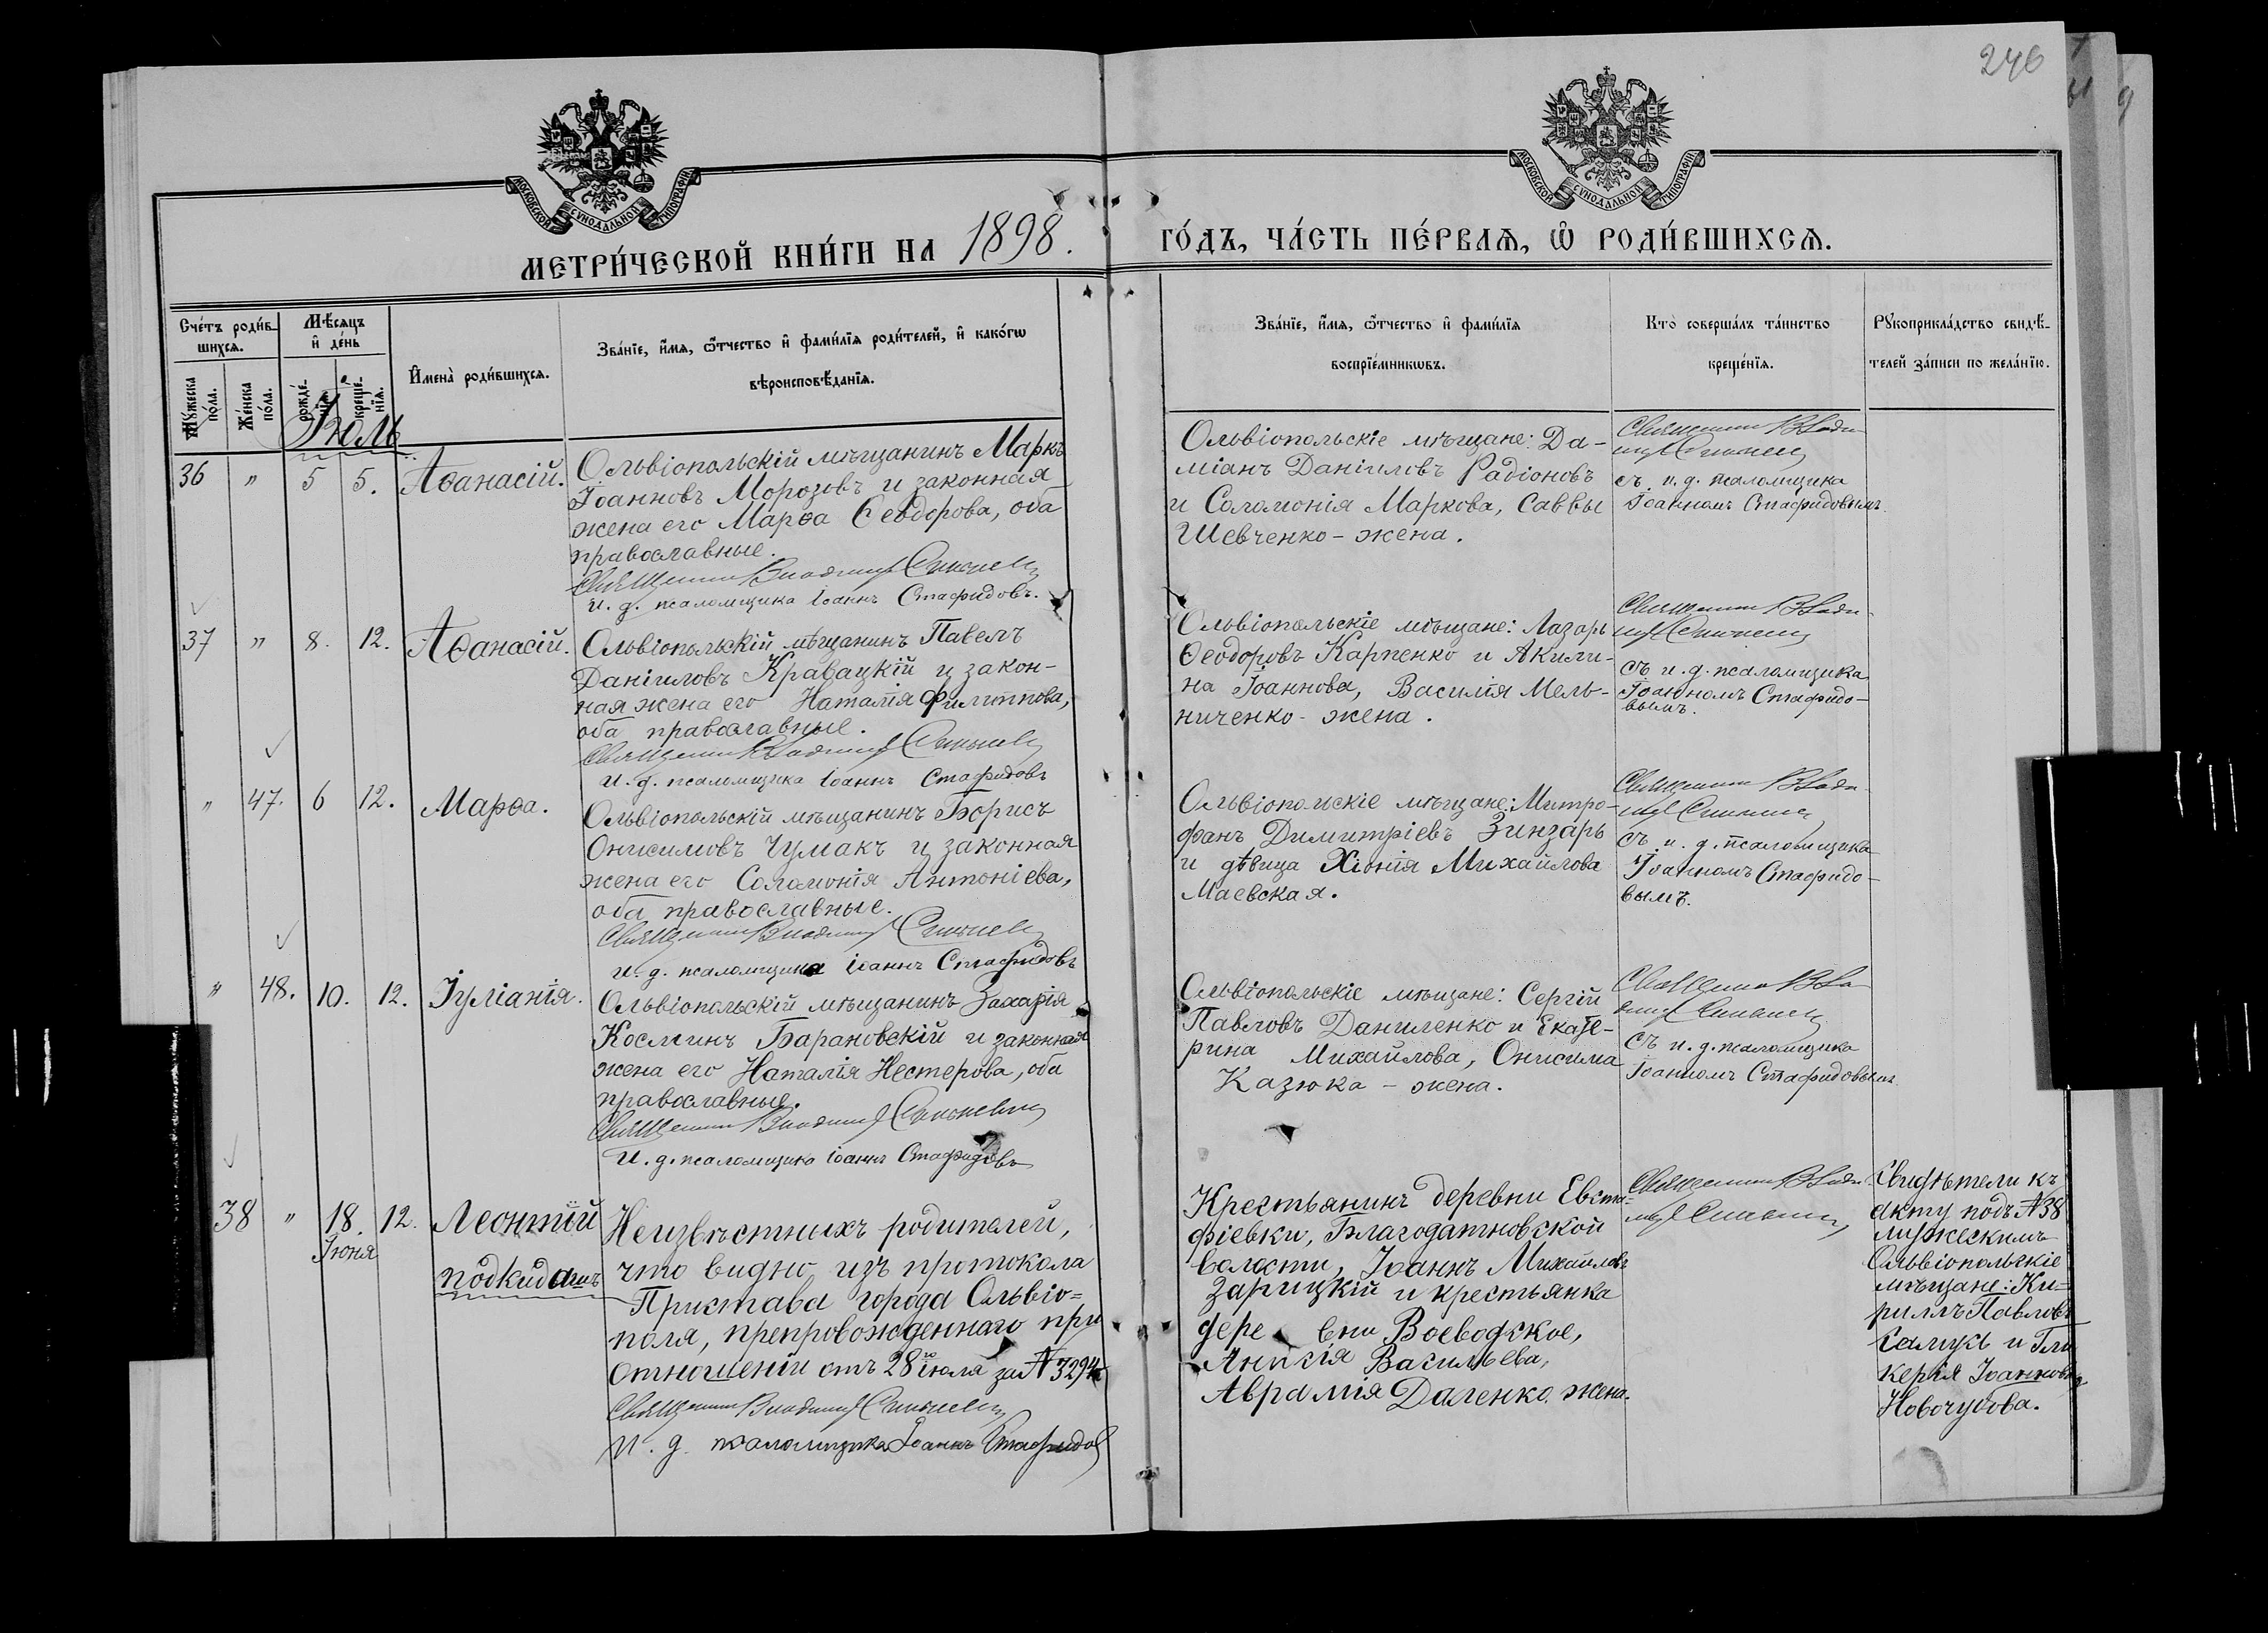 246
МОСКОВСКОЙ СѴНОДАЛЬНОЙ ТИПОГРАФІИ
МОСКОВСКОЙ СѴНОДАЛЬНОЙ ТИПОГРАФІИ
МЕТРИ́ЧЕСКОЙ КНИ́ГИ НА 1898. ГО́ДЪ, ЧА́СТЬ ПЕ́РВАѦ, Ѡ РОДИ́ВШИХСѦ.
Сче́тъ роди́в-
шихсѧ.
Мѣ́сѧцъ
и҆ де́нь
Мꙋ́жеска
по́ла.
Же́нска
по́ла.
рожде́-
нїѧ.
креще́-
нїѧ.
И҆мена̀ роди́вшихсѧ.
Зва́нїе, и҆́мѧ, ѻ҆́тчество и҆ фами́лїѧ роди́телей, и҆ како́гѡ
вѣроисповѣ́данїѧ.
Зва́нїе, и҆́мѧ, ѻ҆́тчество и҆ фами́лїѧ
воспрїе́мникѡвъ.
Кто̀ соверша́лъ та́инство
креще́нїѧ.
Рꙋкоприкла́дство свидѣ́-
телей за́писи по жела́нїю.
Іюль
36 " 5 5. Аѳанасій.
Ольвіопольскій мѣщанинъ Маркъ
Іоанновъ Морозовъ и законная
жена его Марѳа Ѳеодорова, оба
православные.
Священникъ Владимір
и. д. псаломщика Іоаннъ Стафидовъ.
Ольвіопольскіе мѣщане: Да-
міанъ Даніиловъ Радіоновъ
и Соломонія Маркова, Саввы
Шевченко - жена.
Священник Влади-
мір
съ и. д. псаломщика
Іоанномъ Стафидовымъ.
37 " 8. 12. Аѳанасій.
Ольвіопольскій мѣщанинъ Павелъ
Даніиловъ Кравацкій и закон-
ная жена его Наталія Филиппова,
оба православные.
Священник Владимір
и. д. псаломщика Іоаннъ Стафидовъ
Ольвіопольскіе мѣщане: Лазарь
Ѳеодоровъ Карпенко и Акили-
на Іоаннова, Василія Мель-
ниченко - жена.
Священник Влади-
мір
съ и. д. псаломщика
Іоанномъ Стафидо-
вымъ.
" 47. 6 12. Марѳа.
Ольвіопольскій мѣщанинъ Борисъ
Онисимовъ Чумакъ и законная
жена его Соломонія Антоніева,
оба православные.
Священник Владимір
и. д. псаломщика Іоаннъ Стафидовъ
Ольвіопольскіе мѣщане: Митро-
фанъ Димитріевъ Зинзарь
и дѣвица Хіонія Михайлова
Маевская.
Священник Влади-
мір
съ и. д. псаломщика
Іоанномъ Стафидо-
вымъ.
" 48. 10. 12. Іуліанія.
Ольвіопольскій мѣщанинъ Захарія
Косминъ Барановскій и законная
жена его Наталія Нестерова, оба
православные.
Священник Владимір
и. д. псаломщика Іоаннъ Стафидовъ
Ольвіопольскіе мѣщане: Сергій
Павловъ Даниленко и Екате-
рина Михайлова, Онисима
Казюка - жена.
Священник Вла-
димір
съ и. д. псаломщика
Іоанномъ Стафидовымъ.
38 " 18. 12. Леонтій
Іюня
подкидышъ
Неизвѣстныхъ родителей,
что видно изъ протокола
Пристава города Ольвіо=
поля, препровожденнаго при
отношеніи отъ 28го іюля за № 3294
Священник Владимір
И. д. псаломщика Іоаннъ Стафидов
Крестьянинъ деревни Евста-
фіевки, Благодатновской
волости, Іоаннъ Михайловъ
Зарицкій и крестьянка
дере вни Воеводское,
Анисія Васильева,
Аврамія Даленко. жена.
Священник Влади-
мір
Свидѣтели къ
акту подъ № 38
мужескимъ
Ольвіопольскіе
мѣщане: Ки-
риллъ Павловъ
и Гли
керія Іоаннова